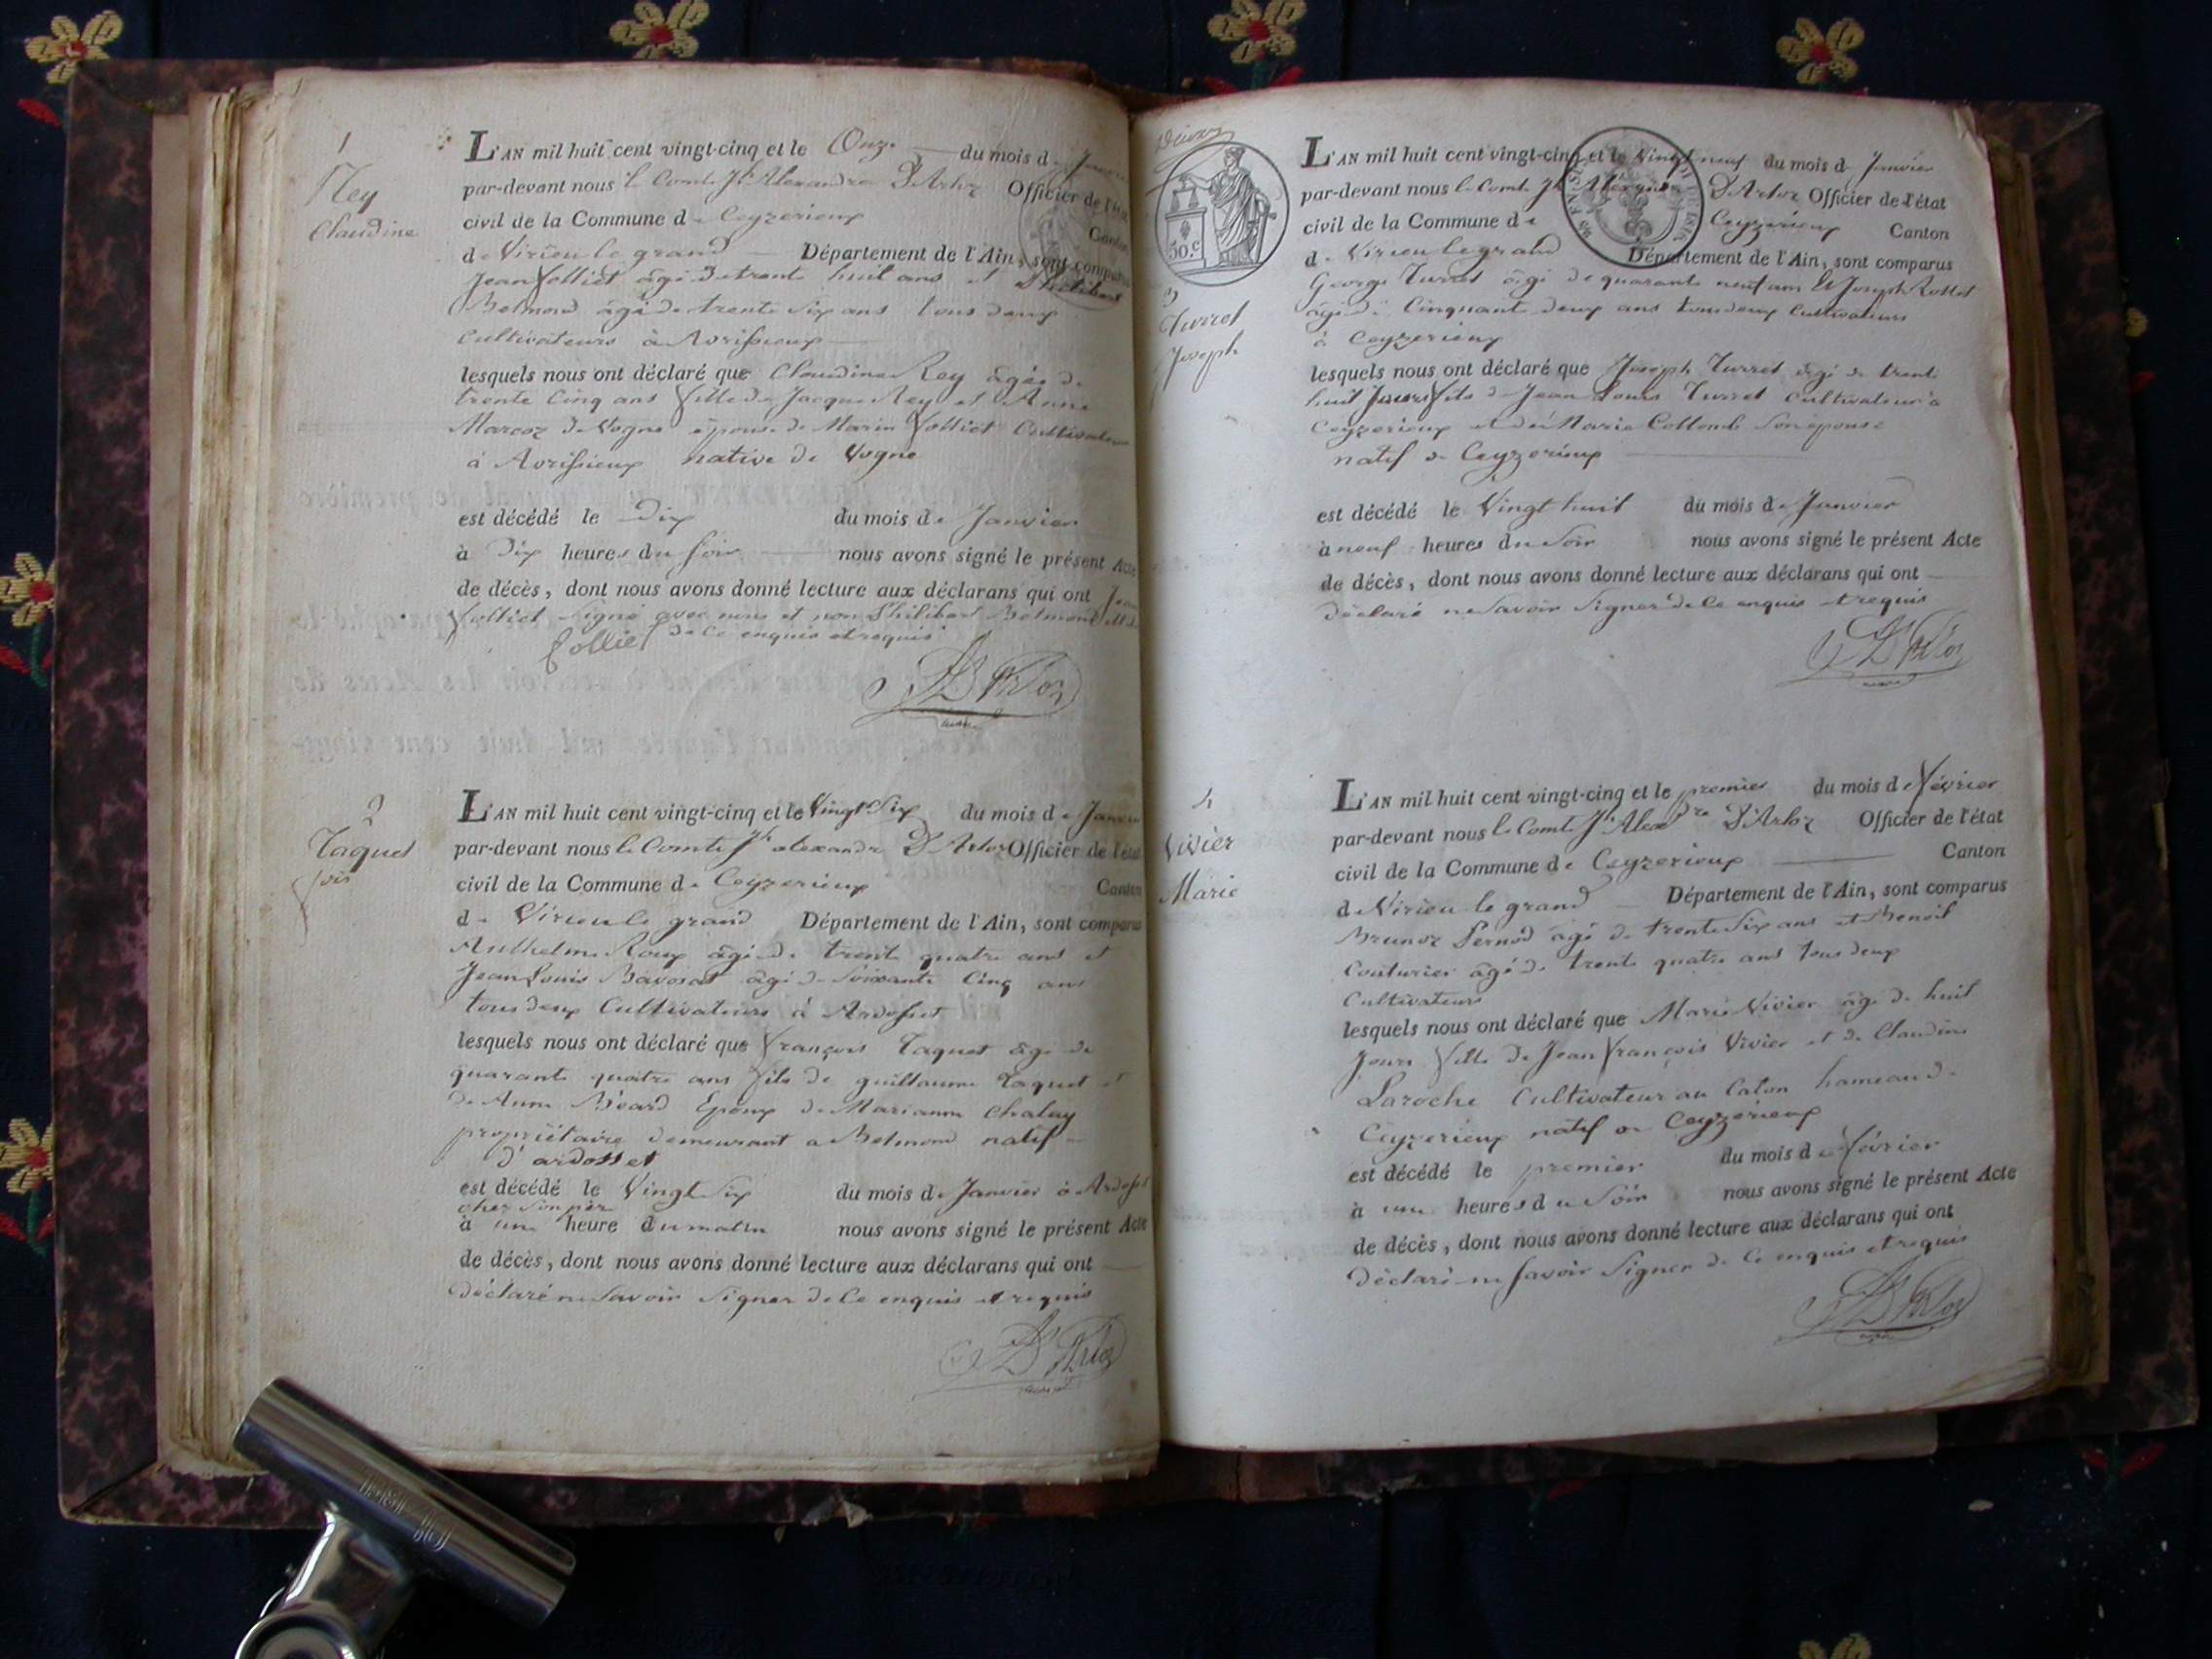 1
Rey
Claudine
L'AN mil huit cent vingt-cinq et le Onze du mois de Janvier
par-devant nous le Comte Jh Alexandre D'Arloz Officier de l'état
civil de la Commune de Ceyzerieux Canton
de Virieu le grand Département de l'Ain, sont comparus
Jean Jolliet âgé de trente huit ans et Philibert
Belmond âgé de trente Six ans tous deux
Cultivateurs à Avrissieux
lesquels nous ont déclaré que Claudine Rey âgée de
trente Cinq ans fille de Jacque Rey et Anne
Marcoz de Vogne épouse de Marin Jolliet Cultivateur
à Avrissieux native de Vogne
est décédé le Dix du mois de Janvier
à Dix heures du Soir nous avons signé le présent Acte
de décès, dont nous avons donné lecture aux déclarans qui ont Jean
Jolliet Signé avec nous et non Philibert Belmond
de ce enquis et requis
Jolliet
D'Arloz
2
Taquet
fois
L'AN mil huit cent vingt-cinq et le Vingt Six du mois de Janvier
par-devant nous le Comte Jh alexandre D'Arloz Officier de l'état
civil de la Commune de Ceyzerieux Canton
de Virieu le grand Département de l'Ain, sont comparus
Anthelme Roux âgé de trente quatre ans et
Jean Louis Bavosat âgé de Soixante Cinq ans
tous deux Cultivateurs à Ardosset
lesquels nous ont déclaré que François Taquet âgé de
quarante quatre ans fils de guillaume Taquet et
de Anne Béard Epoux de Marianne Chaley
propriétaire demeurant a Belmond natif
d'ardosset
est décédé le Vingt Six du mois de Janvier à Ardosset
chez Son père
à une heure du matin nous avons signé le présent Acte
de décès, dont nous avons donné lecture aux déclarans qui ont
déclaré ne Savoir Signer de Ce enquis et requis
D'Arloz
50.c
3
Turret
Joseph
L'AN mil huit cent vingt-cinq et le Vingt neuf du mois de Janvier
par-devant nous le Comte Jh Alexandre D'Arloz Officier de l'état
civil de la Commune de Ceyzerieux Canton
de Virieu le grand Département de l'Ain, sont comparus
George Turret âgé de quarante neuf ans et Joseph Rollet
âgé de Cinquante deux ans tous deux Cultivateurs
à Ceyzerieux
lesquels nous ont déclaré que Joseph Turret âgé de trente
huit Jours fils de Jean Louis Turret Cultivateur à
Ceyzerieux et de Marie Collomb Son épouse
natif de Ceyzerieux
est décédé le Vingt huit du mois de Janvier
à neuf heures du Soir nous avons signé le présent Acte
de décès, dont nous avons donné lecture aux déclarans qui ont
déclaré ne Savoir Signer de Ce enquis et requis
D'Arloz
4
Vivier
Marie
L'AN mil huit cent vingt-cinq et le premier du mois de février
par-devant nous le Comte Jh Alexdre D'Arloz Officier de l'état
civil de la Commune de Ceyzerieux Canton
de Virieu le grand Département de l'Ain, sont comparus
Brunoz Pernod âgé de trente Six ans et Benoit
Couturier âgé de trente quatre ans tous deux
Cultivateurs
lesquels nous ont déclaré que Marie Vivier âgé de huit
Jours fille de Jean François Vivier et de Claudine
Laroche Cultivateur au Caton hameau de
Ceyzerieux natif de Ceyzerieux
est décédé le premier du mois de février
à une heures du Soir nous avons signé le présent Acte
de décès, dont nous avons donné lecture aux déclarans qui ont
déclaré ne Savoir Signer de Ce enquis et requis
D'Arloz